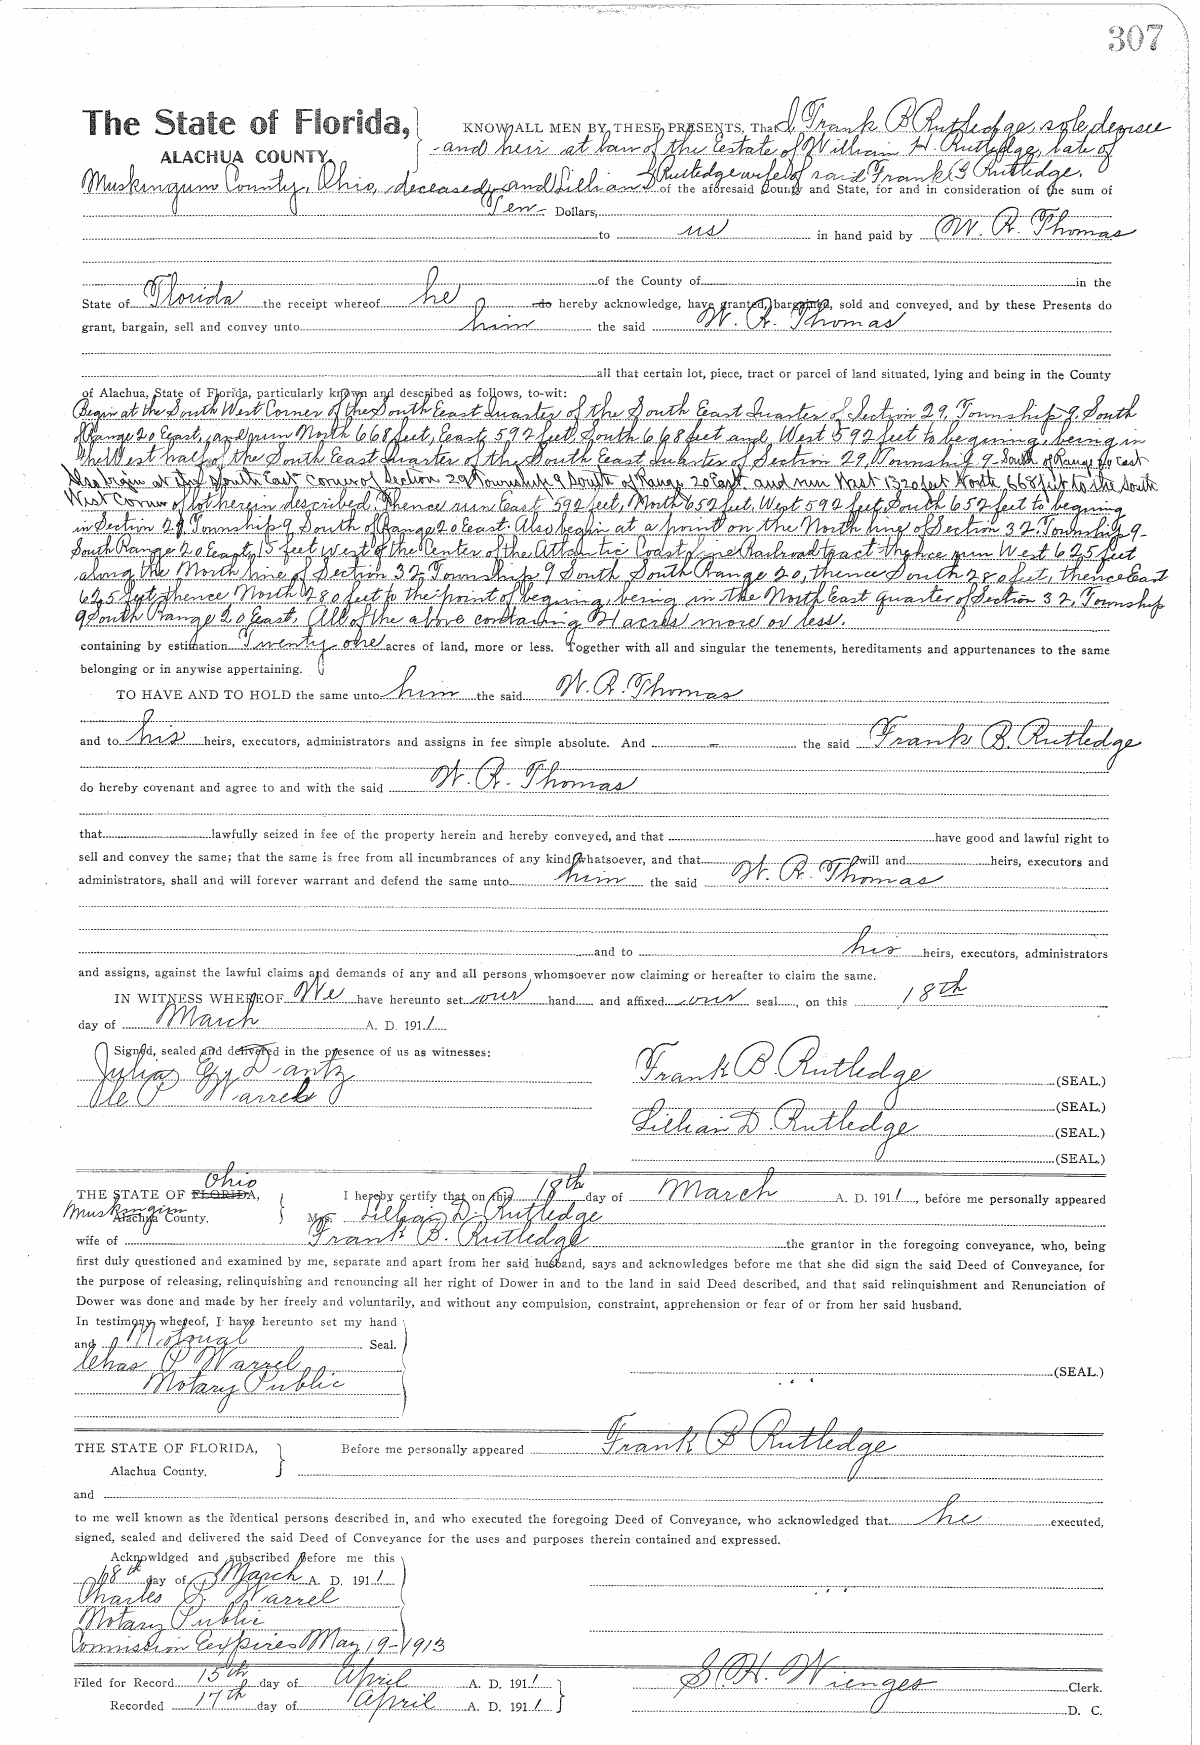 307
The State of Florida,
ALACHUA COUNTY.
KNOW ALL MEN BY THESE PRESENTS, That I, Frank B Rutledge, sole devisee
and heir at law of the Estate of William H. Rutledge, late of
Muskingum County, Ohio, deceased, and Lillian D Rutledge wife of said Frank B Rutledge. of the aforesaid County and State, for and in consideration of the sum of
Ten - Dollars,
to us in hand paid by W. R. Thomas
of the County of in the
State of Florida the receipt whereof he do hereby acknowledge, have granted, bargained, sold and conveyed, and by these Presents do
grant, bargain, sell and convey unto him the said W. R. Thomas
all that certain lot, piece, tract or parcel of land situated, lying and being in the County
of Alachua, State of Florida, particularly known and described as follows, to-wit:
Begin at the South West Corner of the South East Quarter of the South East Quarter of Section 29, Township 9. South
of Range 20 East, and run North 668 feet, East, 592 feet, South 668 feet and, West 592 feet to begining, being in
the West half of the South East Quarter of the South East Quarter of Section 29, Township 9 South of Range 20 East
Also begin at the South East corner of Section 29 Township 9 South of Range 20 East and run West 1320 feet North 668 feet to the South
West Corner of lot herein described. Thence run East 592 feet, North 652 feet, West 592 feet, South 652 feet to begining
in Section 29 Township 9 South of Range 20 East. Also begin at a point on the North line of Section 32 Township 9-
South Range 20 East, 15 feet West of the Center of the Atlantic Coast Line Railroad tract thence run West 625 feet
along the North line of Section 32 Township 9 South South Range 20, thence South 280 feet, thence East
625 feet thence North 280 feet to the point of begining, being in the North East quarter of Section 32, Township
9 South Range 20 East. All of the above containing 21 acres more or less.
containing by estimation Twenty one acres of land, more or less. Together with all and singular the tenements, hereditaments and appurtenances to the same
belonging or in anywise appertaining.
TO HAVE AND TO HOLD the same unto him the said W. R. Thomas
and to his heirs, executors, administrators and assigns in fee simple absolute. And - the said Frank B. Rutledge
do hereby covenant and agree to and with the said W. R. Thomas
that lawfully seized in fee of the property herein and hereby conveyed, and that have good and lawful right to
sell and convey the same; that the same is free from all incumbrances of any kind whatsoever, and that will and heirs, executors and
administrators, shall and will forever warrant and defend the same unto him the said W. R. Thomas
and to his heirs, executors, administrators
and assigns, against the lawful claims and demands of any and all persons whomsoever now claiming or hereafter to claim the same.
IN WITNESS WHEREOF We have hereunto set our hand and affixed our seal, on this 18th
day of March A. D. 1911.
Signed, sealed and delivered in the presence of us as witnesses:
Frank B Rutledge (SEAL.)
(SEAL.)
Lillian D. Rutledge (SEAL.)
(SEAL.)
THE STATE OF FLORIDA, Ohio
Muskingum Alachua County.
I hereby certify that on this 18th day of March A. D. 1911, before me personally appeared
Mrs. Lillian D. Rutledge
wife of Frank B. Rutledge the grantor in the foregoing conveyance, who, being
first duly questioned and examined by me, separate and apart from her said husband, says and acknowledges before me that she did sign the said Deed of Conveyance, for
the purpose of releasing, relinquishing and renouncing all her right of Dower in and to the land in said Deed described, and that said relinquishment and Renunciation of
Dower was done and made by her freely and voluntarily, and without any compulsion, constraint, apprehension or fear of or from her said husband.
In testimony whereof, I have hereunto set my hand
and Seal.
Chas P Warrel
Notary Public
(SEAL.)
THE STATE OF FLORIDA,
Alachua County.
Before me personally appeared Frank B Rutledge
and
to me well known as the identical persons described in, and who executed the foregoing Deed of Conveyance, who acknowledged that he executed,
signed, sealed and delivered the said Deed of Conveyance for the uses and purposes therein contained and expressed.
Acknowldged and subscribed before me this
18th day of March A. D. 1911
Charles P. Warrel
Notary Public
Commission Eexpires May 19-1913
Filed for Record 15th day of April A. D. 1911
Recorded 17th day of April A. D. 1911
S. H. Wienges Clerk.
D. C.